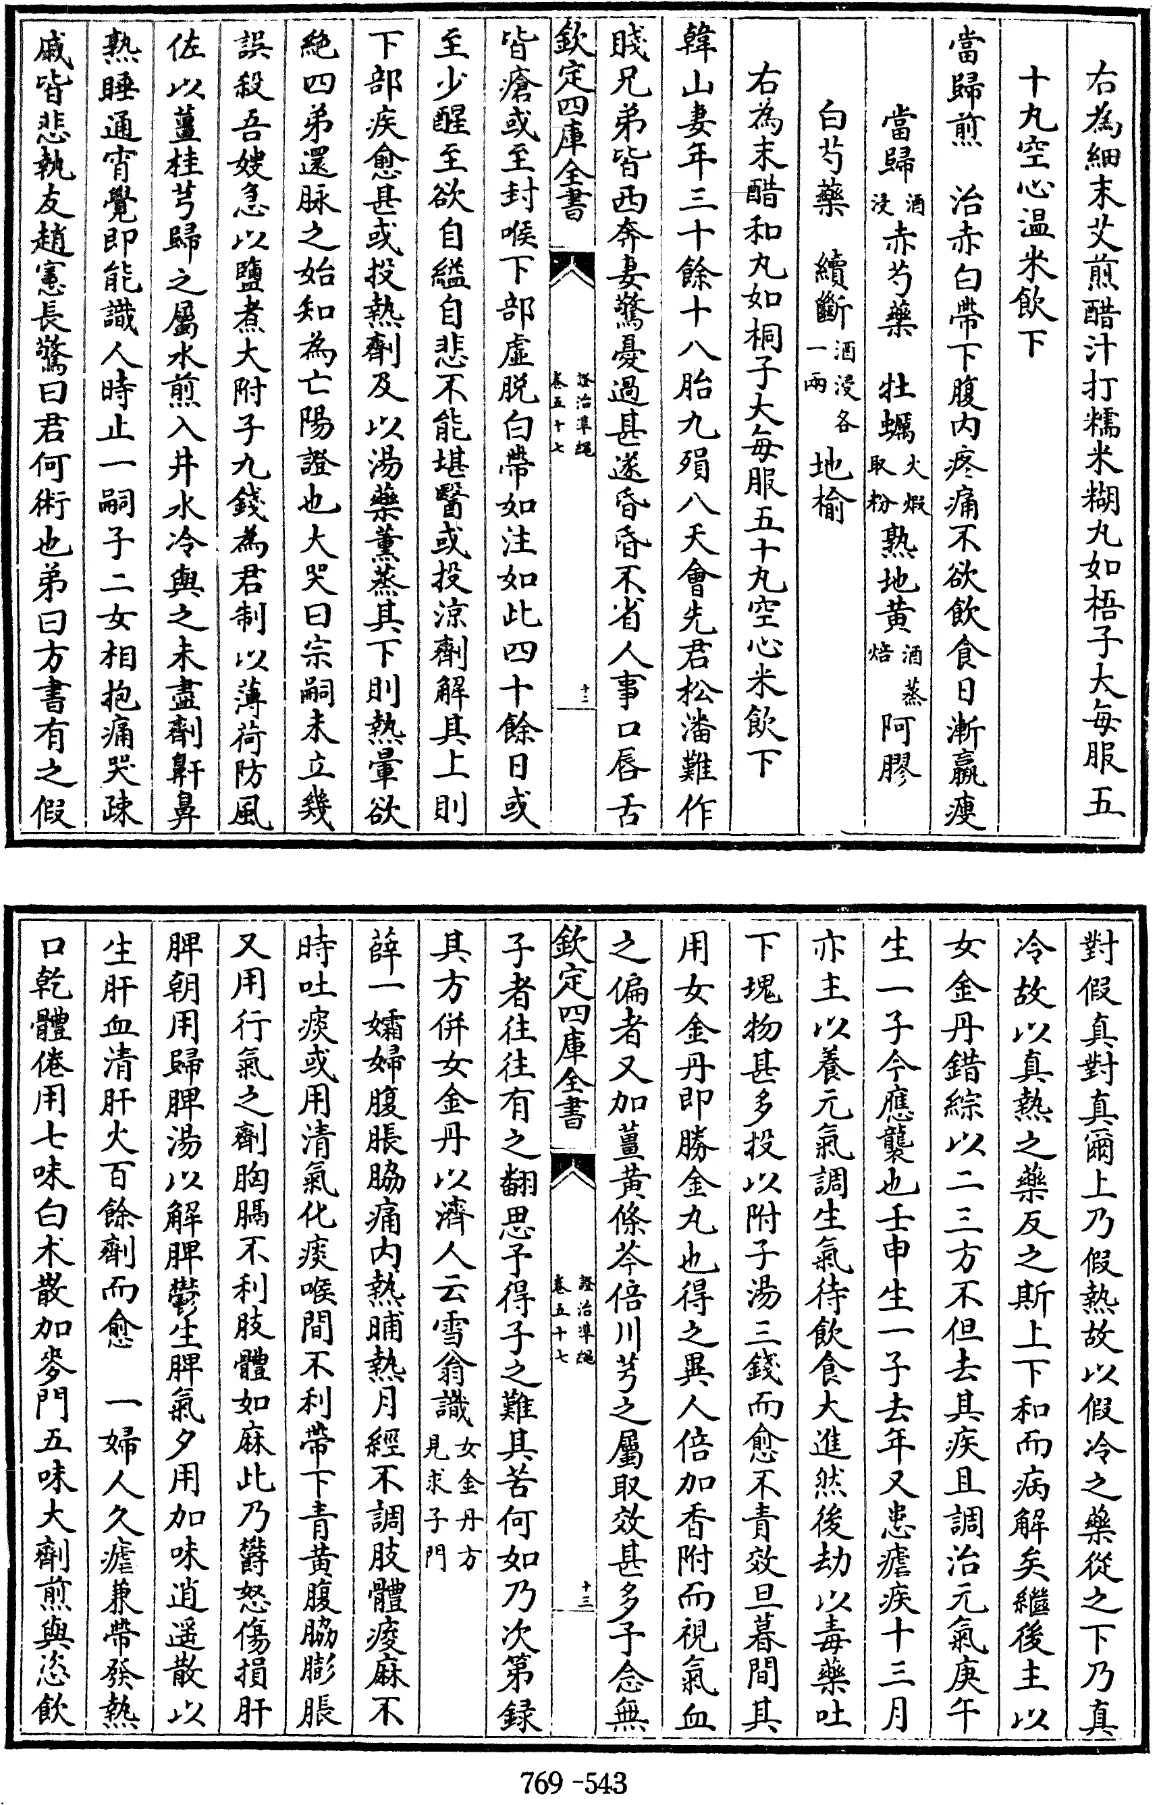 右為細末艾煎醋汁打糯米糊丸如梧子大每服五
十丸空心溫米飲下
當歸煎　治赤白帶下腹內疼痛不欲飲食日漸羸瘦
當歸酒浸赤芍藥　牡蠣火煅取粉熟地黃酒蒸焙阿膠
白芍藥　續斷酒浸各一兩地榆
右為末醋和丸如桐子大每服五十丸空心米飲下
韓山妻年三十餘十八胎九殞八夭會先君松潘難作
賤兄弟皆西奔妻驚憂過甚遂昏昏不省人事口唇舌
欽定四庫全書　證治準繩　卷五十七　十二
皆瘡或至封喉下部虛脫白帶如注如此四十餘日或
至少醒至欲自縊自悲不能堪醫或投涼劑解其上則
下部疾愈甚或投熱劑及以湯藥薰蒸其下則熱暈欲
絶四弟還脉之始知為亡陽證也大哭曰宗嗣未立幾
誤殺吾嫂急以鹽煮大附子九錢為君制以薄荷防風
佐以薑桂芎歸之屬水煎入井水冷與之未盡劑鼾鼻
熟睡通宵覺即能識人時止一嗣子二女相抱痛哭疎
戚皆悲執友趙憲長驚曰君何術也弟曰方書有之假
對假真對真爾上乃假熱故以假冷之藥從之下乃真
冷故以真熱之藥反之斯上下和而病解矣繼後主以
女金丹錯綜以二三方不但去其疾且調治元氣庚午
生一子今應襲也壬申生一子去年又患瘧疾十三月
亦主以養元氣調生氣待飲食大進然後劫以毒藥吐
下塊物甚多投以附子湯三錢而愈不責效旦暮間其
用女金丹即勝金丸也得之異人倍加香附而視氣血
之偏者又加薑黃條芩倍川芎之屬取效甚多予念無
欽定四庫全書　證治準繩　卷五十七　十三
子者往往有之翻思予得子之難其苦何如乃次第録
其方併女金丹以濟人云雪翁識女金丹方見求子門
薛一孀婦腹脹脇痛內熱晡熱月經不調肢體痠麻不
時吐痰或用清氣化痰喉間不利帶下青黃腹脇膨脹
又用行氣之劑胸膈不利肢體如麻此乃欝怒傷損肝
脾朝用歸脾湯以解脾鬱生脾氣夕用加味逍遥散以
生肝血清肝火百餘劑而愈　一婦人久瘧兼帶發熱
口乾體倦用七味白朮散加麥門五味大劑煎與恣飲
769-543